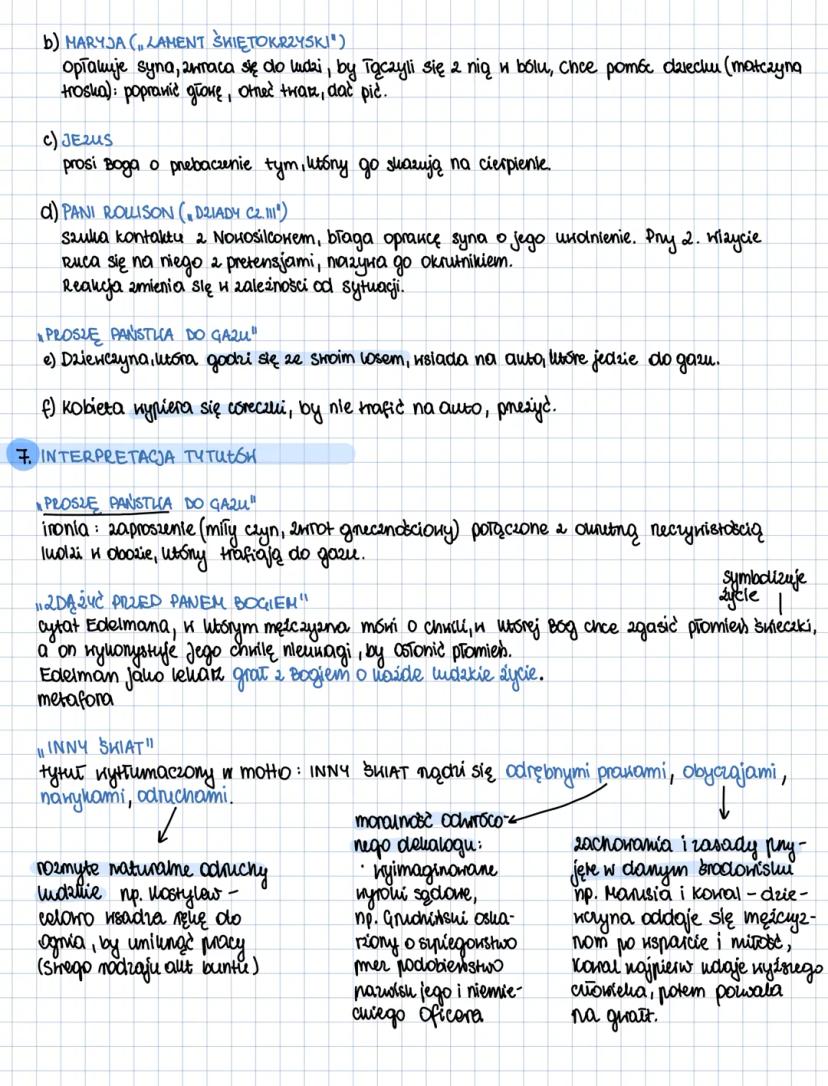 b) MARYJA („LAMENT ŚWIĘTOKRZYSKI")
opłakuje syna, zwraca się do ludzi, by łączyli się z nią w bólu, chce pomóc dziecku (matczyna
troska): poprawić głowę, otrzeć twarz, dać pić.
c) JEZUS
prosi Boga o przebaczenie tym, którzy go skazują na cierpienie.
d) PANI ROLLISON („DZIADY CZ. III")
Szuka kontaktu z Nowosilcowem, błaga oprawcę syna o jego uwolnienie. Przy 2. wizycie
rzuca się na niego z pretensjami, nazywa go okrutnikiem.
Reakcja zmienia się w zależności od sytuacji.
„PROSZĘ PAŃSTWA DO GAZU"
e) Dziewczyna, która godzi się ze swoim losem, wsiada na auto, które jedzie do gazu.
f) Kobieta wypiera się córeczki, by nie trafić na auto, przeżyć.
7. INTERPRETACJA TYTUŁÓW
„PROSZĘ PAŃSTWA DO GAZU"
ironia: zaproszenie (miły czyn, zwrot grzecznościowy) połączone z okrutną rzeczywistością
ludzi w obozie, którzy trafiają do gazu.
symbolizuje
życie
„ZDĄŻYĆ PRZED PANEM BOGIEM"
cytat Edelmana, w którym mężczyzna mówi o chwili, w której Bóg chce zgasić płomień świeczki,
a on wykorzystuje Jego chwilę nieuwagi, by osłonić płomień.
Edelman jako lekarz grał z Bogiem o każde ludzkie życie.
metafora
„INNY ŚWIAT"
tytuł wytłumaczony w motto: INNY ŚWIAT rządzi się odrębnymi prawami, obyczajami,
nawykami, odruchami.
rozmyte naturalne odruchy
ludzkie np. Kostylew -
celowo wsadza rękę do
ognia, by uniknąć pracy
(swego rodzaju akt buntu)
moralność odwróco-
nego dekalogu:
· wyimaginowane
wyroki sądowe,
np. Grudziński oska-
rżony o szpiegostwo
przez podobieństwo
nazwiska jego i niemie-
ckiego oficera
zachowania i zasady przy-
jęte w danym środowisku
np. Marusia i Kowal - dzie-
wczyna oddaje się mężczyz-
nom po wsparcie i miłość,
Kowal najpierw udaje wyższego
człowieka, potem pozwala
na gwałt.